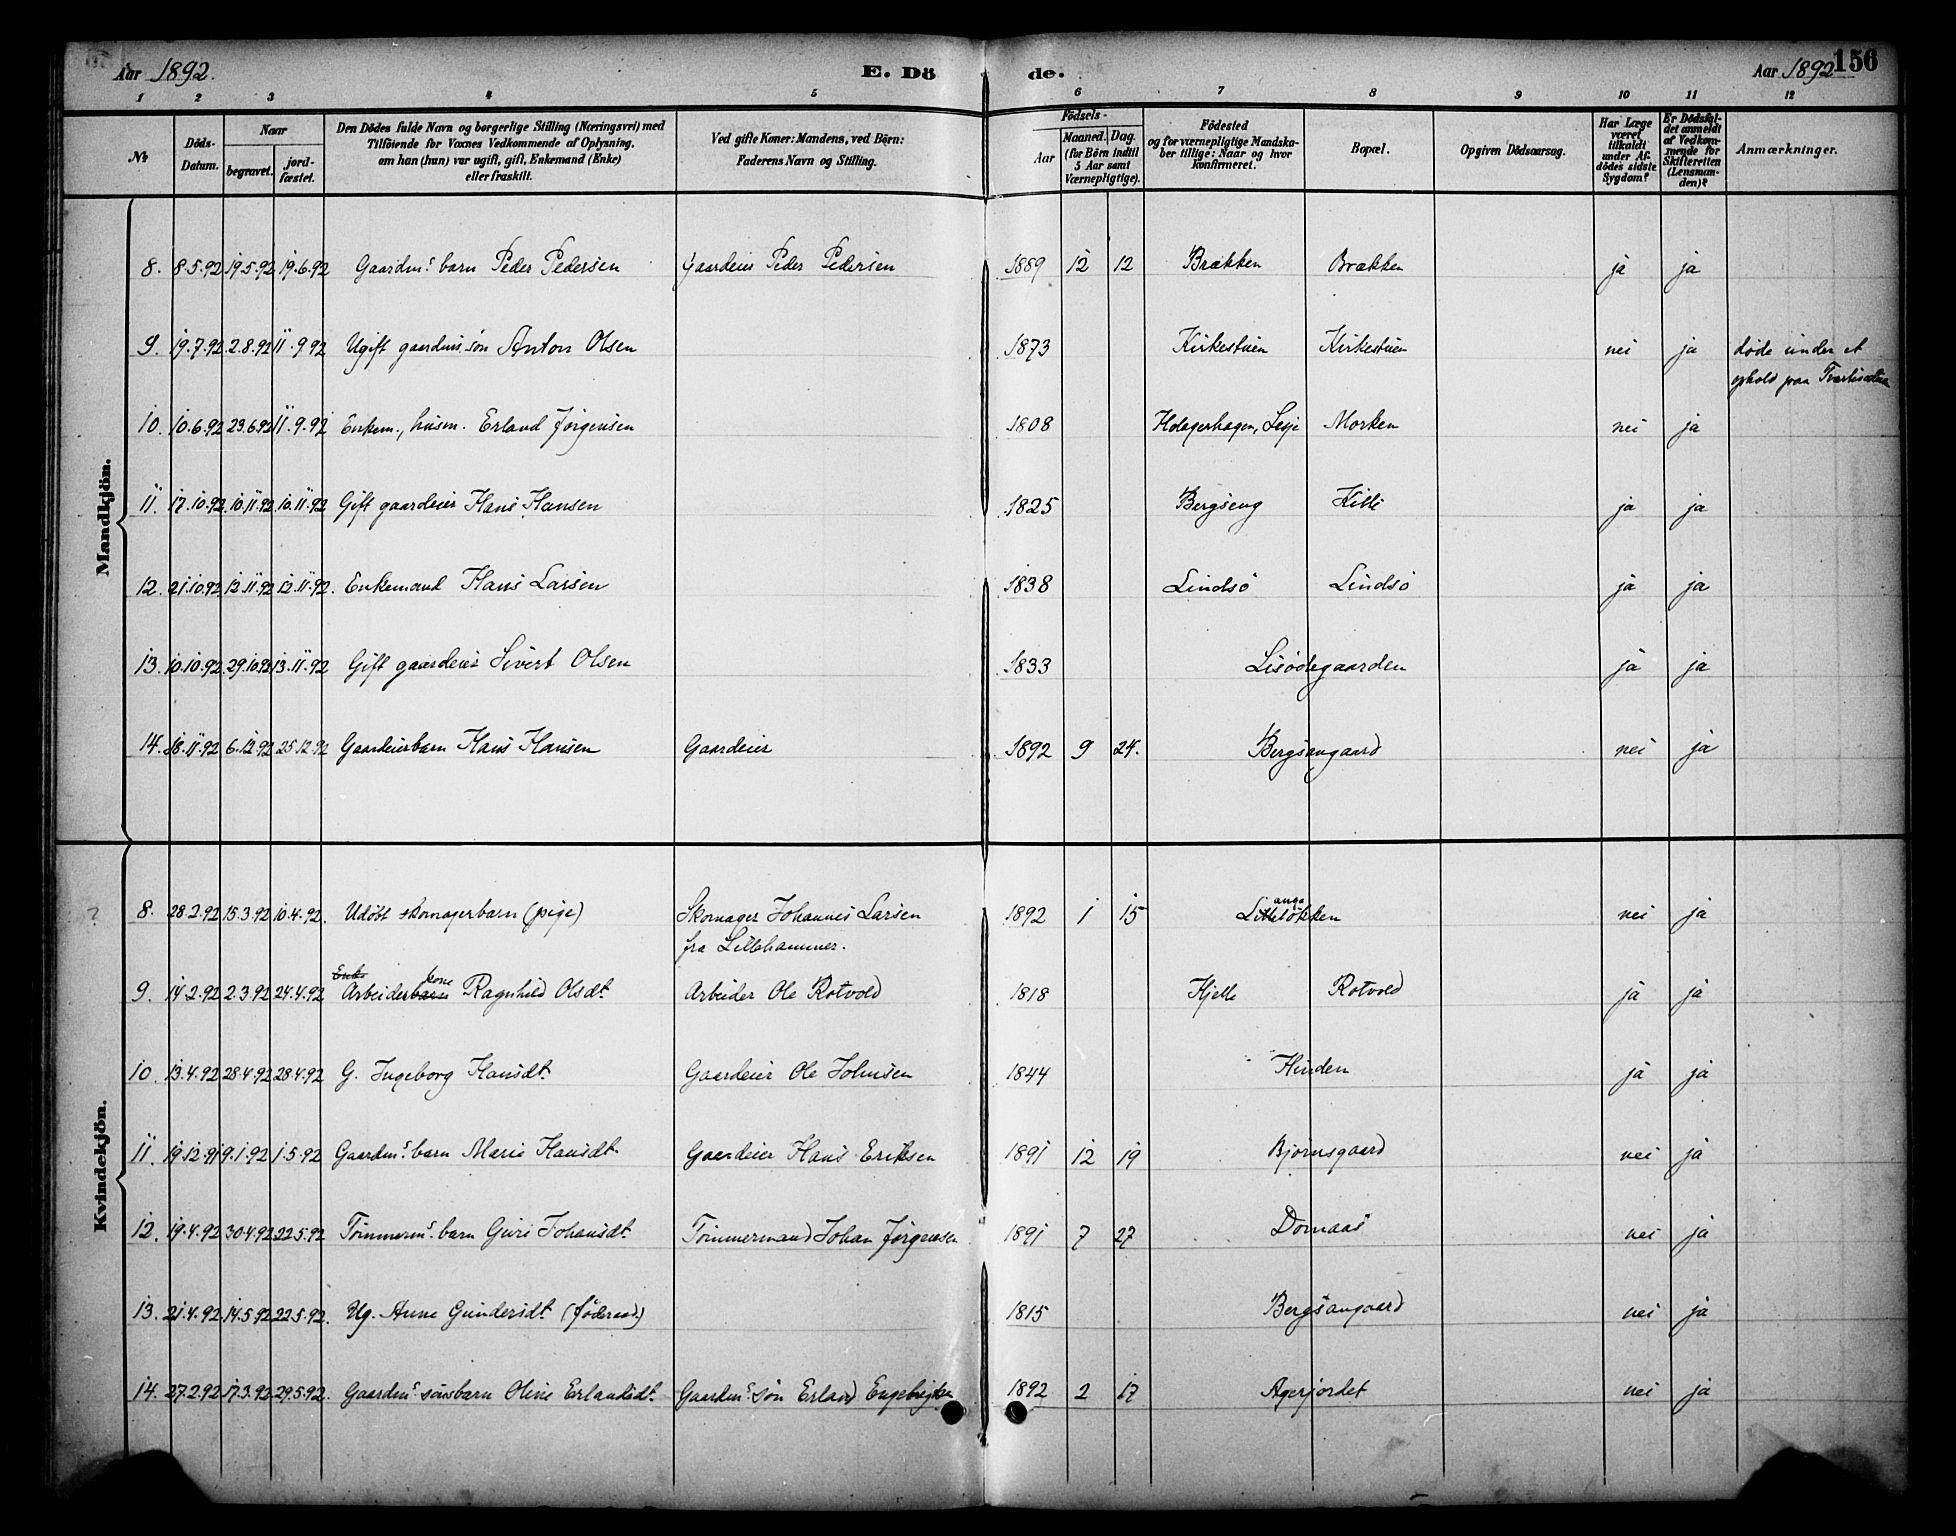 Aar 1892. E. Dö de. Aar 1892 156
1 2 3 4 5 6 7 8 9 10 11 12
№ Döds-Datum. Naar begravet. jordfæstet. Den Dödes fulde Navn og borgerlige Stilling (Næringsvei) med Tilföiende for Voxnes Vedkommende af Oplysning, om han (hun) var ugift, gift, Enkemand (Enke) eller fraskilt. Ved gifte Koner: Mandens, ved Börn: Faderens Navn og Stilling. Födsels- Aar Maaned. Dag. (for Börn indtil 5 Aar samt Værnepligtige). Födested og for værnepligtige Mandskaber tillige: Naar og hvor konfirmeret. Bopæl. Opgiven Dödsaarsag. Har Læge været tilkaldt under Afdödes sidste Sygdom? Er Dödsfaldet anmeldt af Vedkommende for Skifteretten (Lensmanden)? Anmærkninger.
Mandkjön.
8. 8.5.92 19.5.92 19.6.92 Gaardms barn Peder Pedersen Gaardeier Peder Pedersen 1889 12 12 Brækken Brækken ja ja
9. 19.7.92 2.8.92 11.9.92 Ugift gaardms. søn Anton Olsen 1873 Kirkestuen Kirkestuen nei ja døde under et
ophold paa
10. 10.6.92 23.6.92 11.9.92 Enkem., husm. Erland Jørgensen 1808 Holagerhagen, Lesje Morken nei ja
11. 17.10.92 10.11.92 10.11.92 Gift gaardeier Hans Hansen 1825 Bergseng Kille ja ja
12. 21.10.92 12.11.92 12.11.92. Enkemand Hans Larsen 1838 Lindsø Lindsø ja ja
13. 10.10.92 29.10.92 13.11.92 Gift gaardeier Sivert Olsen 1833 Lisødegaarden ja ja
14. 18.11.92 6.12.92 25.12.92 Gaardeierbarn Hans Hansen Gaardeier 1892 9 24. Bergsangaard nei ja
Kvindekjön.
? 8. 28.2.92 15.3.92 10.4.92. Udøbt skomagerbarn (pige) Skomager Johannes Larsen 1892 1 15 nei ja
fra Lillehammer.
9. 14.2.92 2.3.92 24.4.92 Enke Arbeiderbarn kone Ragnhild Olsdt. Arbeider Ole Rotvold 1818 Kjelle Rotvold ja ja
10. 13.4.92 28.4.92 28.4.92 G. Ingeborg Hansdt. Gaardeier Ole Johnsen 1844 Hinden ja ja
11. 19.12.91 9.1.92 1.5.92 Gaardms. barn Marie Hansdt. Gaardeier Hans Eriksen 1891 12 19 Bjørnsgaard nei ja
12. 19.4.92 30.4.92 22.5.92 Tømmerms. barn Guri Johansdt. Tømmermand Johan Jørgensen 1891 7 27 Domaas nei ja
13. 21.4.92 14.5.92 22.5.92. Ug. Anne Gundersdt. (føderaad) 1815 Bergsangaard nei ja
14. 27.2.92 17.3.92 29.5.92. Gaardms. sønsbarn Oline Erlandsdt. Gaardms. søn Erland Engebrigtsen 1892 2 17 Agerjordet nei ja